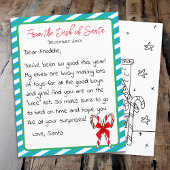 From the Desk of Santa
December 2023
Dear Freddie,
You've been so good this year!
My elves are busy making lots
of toys for all the good boys
and girls, and I find you are on
the "nice" list. So make sure to go
to bed on time and I hope you
like all your surprises!
Love, Santa